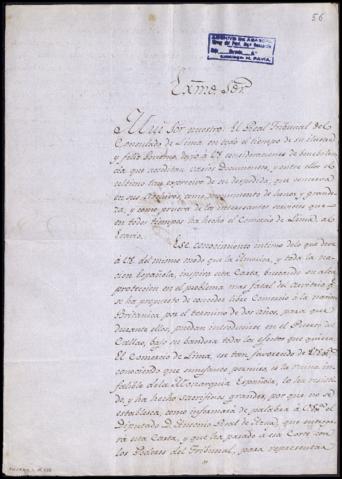 56
Exmo Sor
Mui Sor nuestro: El Real Tribunal del
Consulado de Lima, en todo el tiempo de su ilustre
y feliz Gobierno, devió à VE consideraciones de beneficen
cia que acreditan varios Documentos, y entre ellos el
ultimo tan expresivo de su despedida, que conserva
en sus Archivos, como un monumento de honor, y grande
za, y como prueba de los interesantes servicios que
en todos tiempos ha hecho el Comercio de Lima, al
Erario.
Ese conocimiento intimo de lo que deve
à VE. del mismo modo que la America, y toda la na
cion Española, inspira esta Carta, buscando su alta
proteccion en el problema mas fatal del arvitrio qe.
se ha propuesto de conceder libre Comercio à la nacion
Britanica, por el termino de dos años, para que
durante ellos, puedan introducir en el Puerto del
Callao, bajo su bandera todos los efectos que quiera.
El Comercio de Lima, es tan favorecido de VE
conociendo que semejante permiso es la ruina in
falible de la Monarquia Española, lo ha resisti
do, y ha hecho sacrificios grandes, por que no se
establesca, como informará de palabra à VE. el
Diputado D. Antonio
esta Carta, y que ha pasado à esa Corte con
los Poderes del Tribunal, para representar